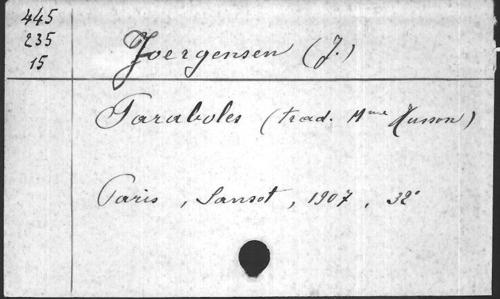 445
235
15
Joergensen (J.)
Paraboles (trad. Mme Husson)
Paris, Sansot, 1907, 32°